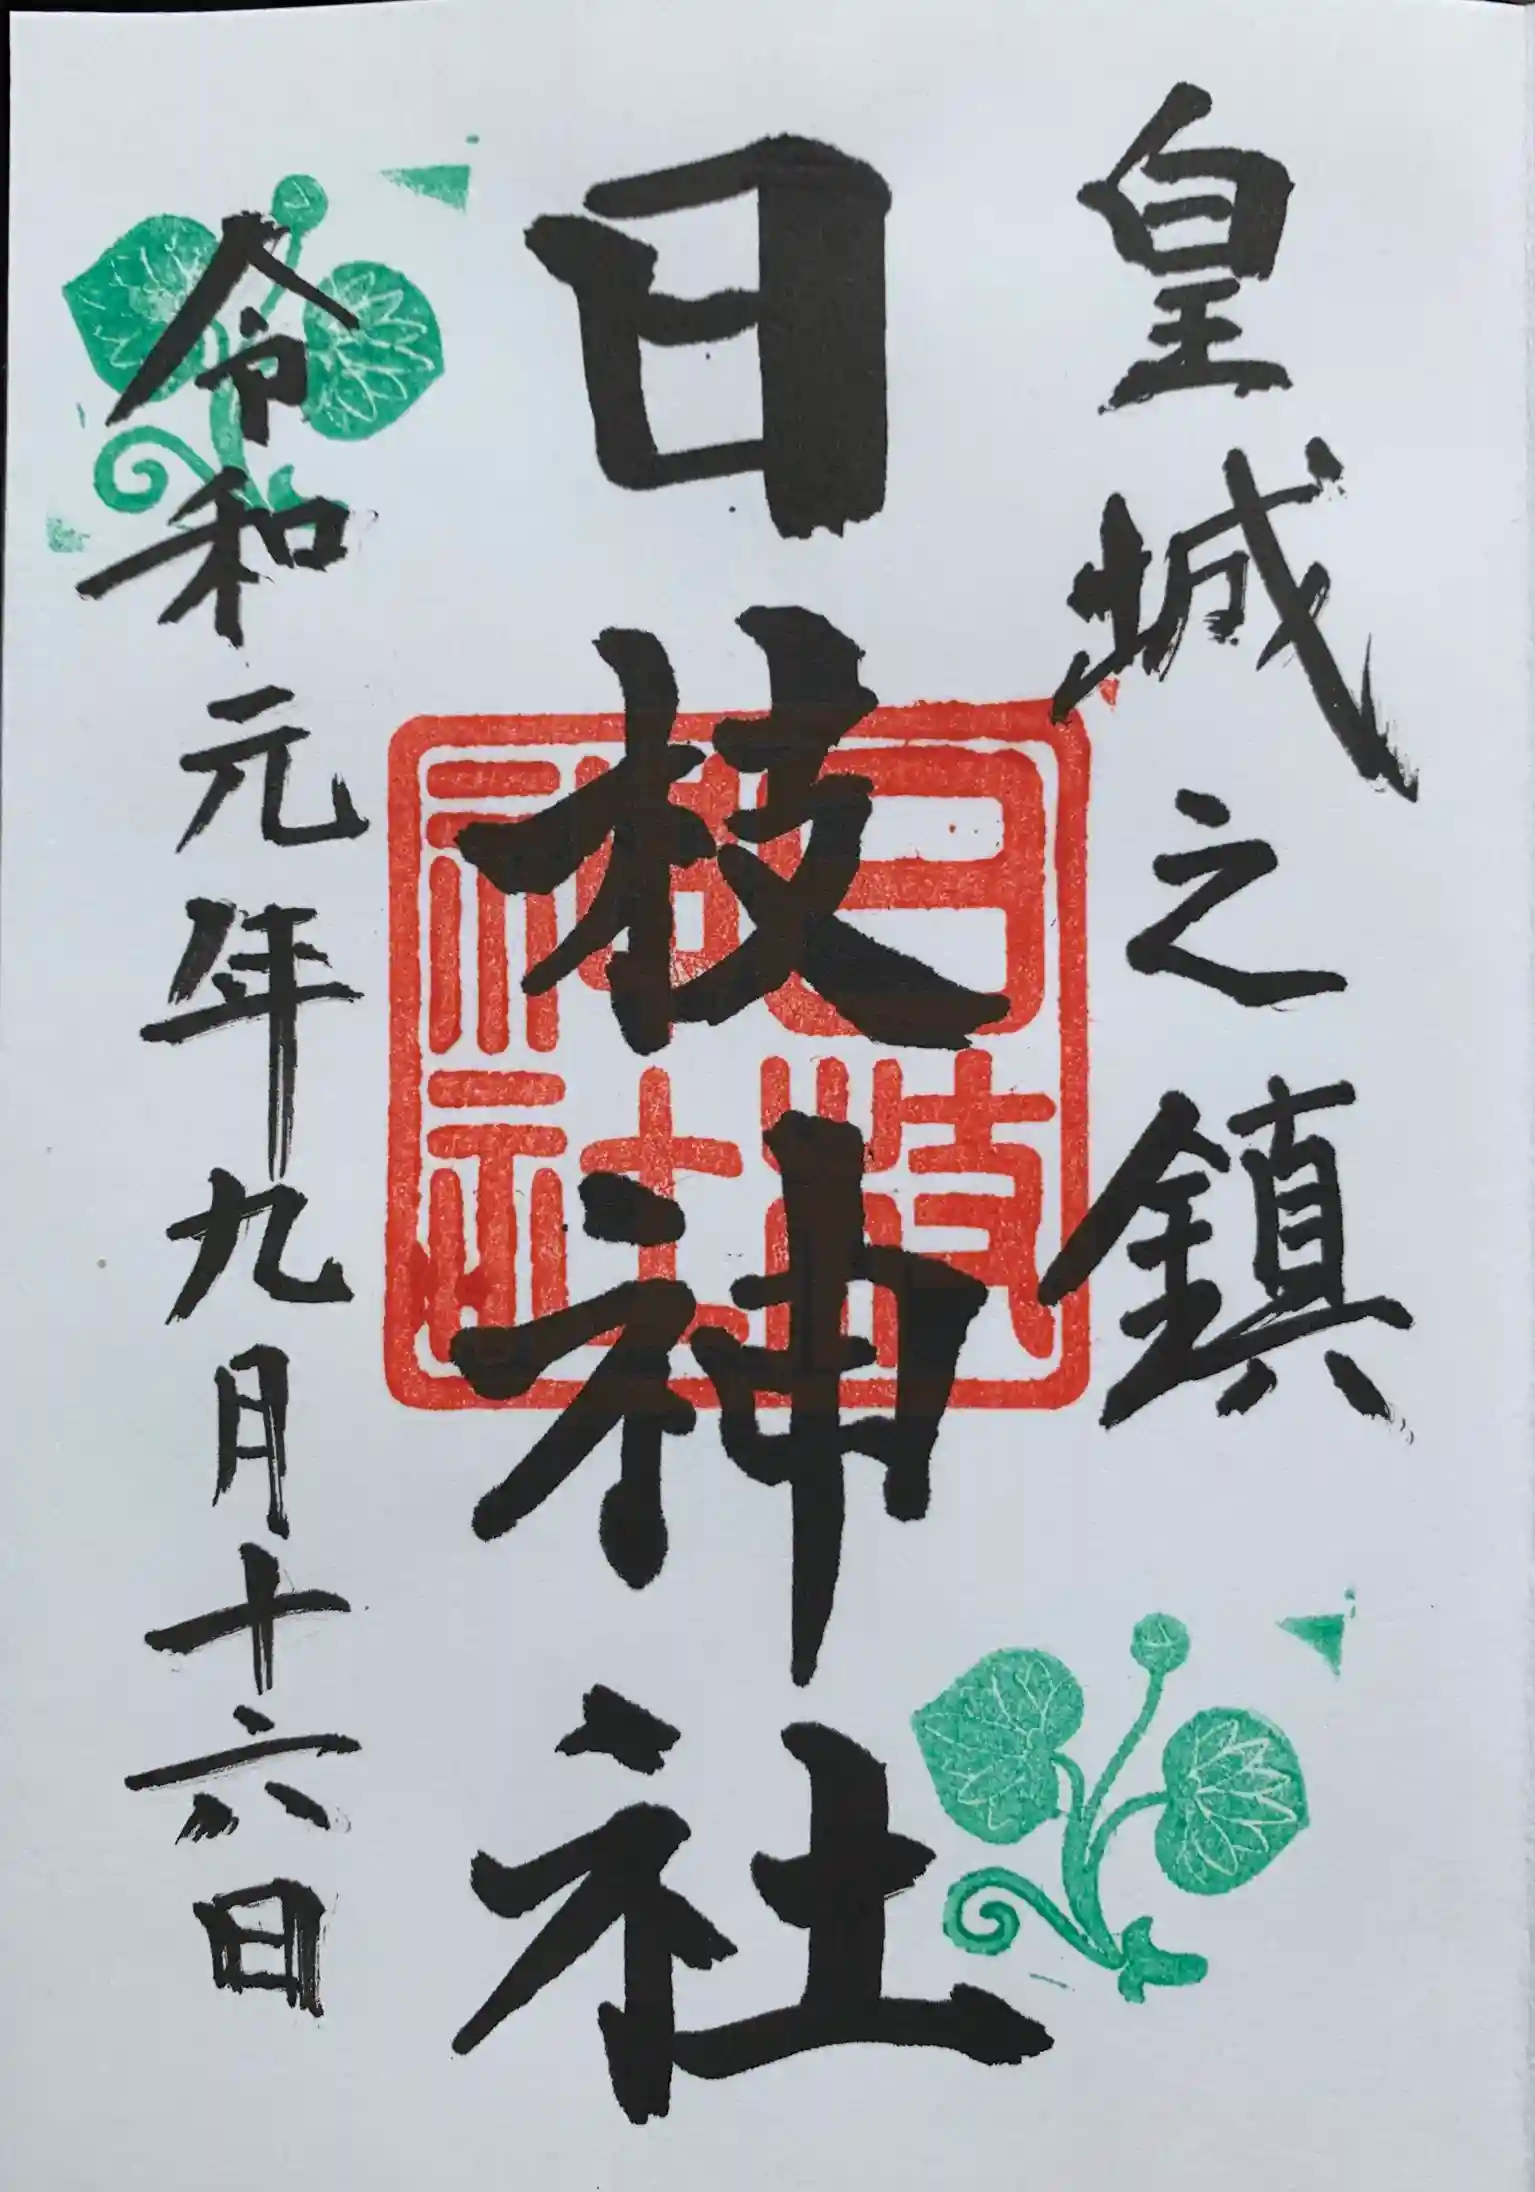 皇城之鎮
日枝神社
日枝
神社
令和元年九月十六日